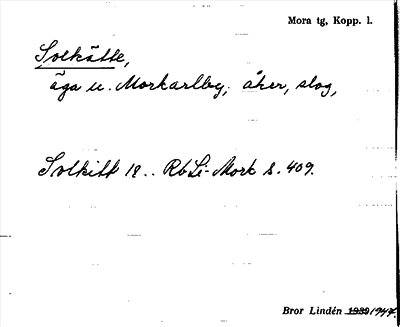 Mora tg, Kopp. l.
Solkätte,
äga u. Morkarlby; åker, slog,
Solkitt 18.. RbLi-Mork s. 409.
Bror Lindén 1939 1947.